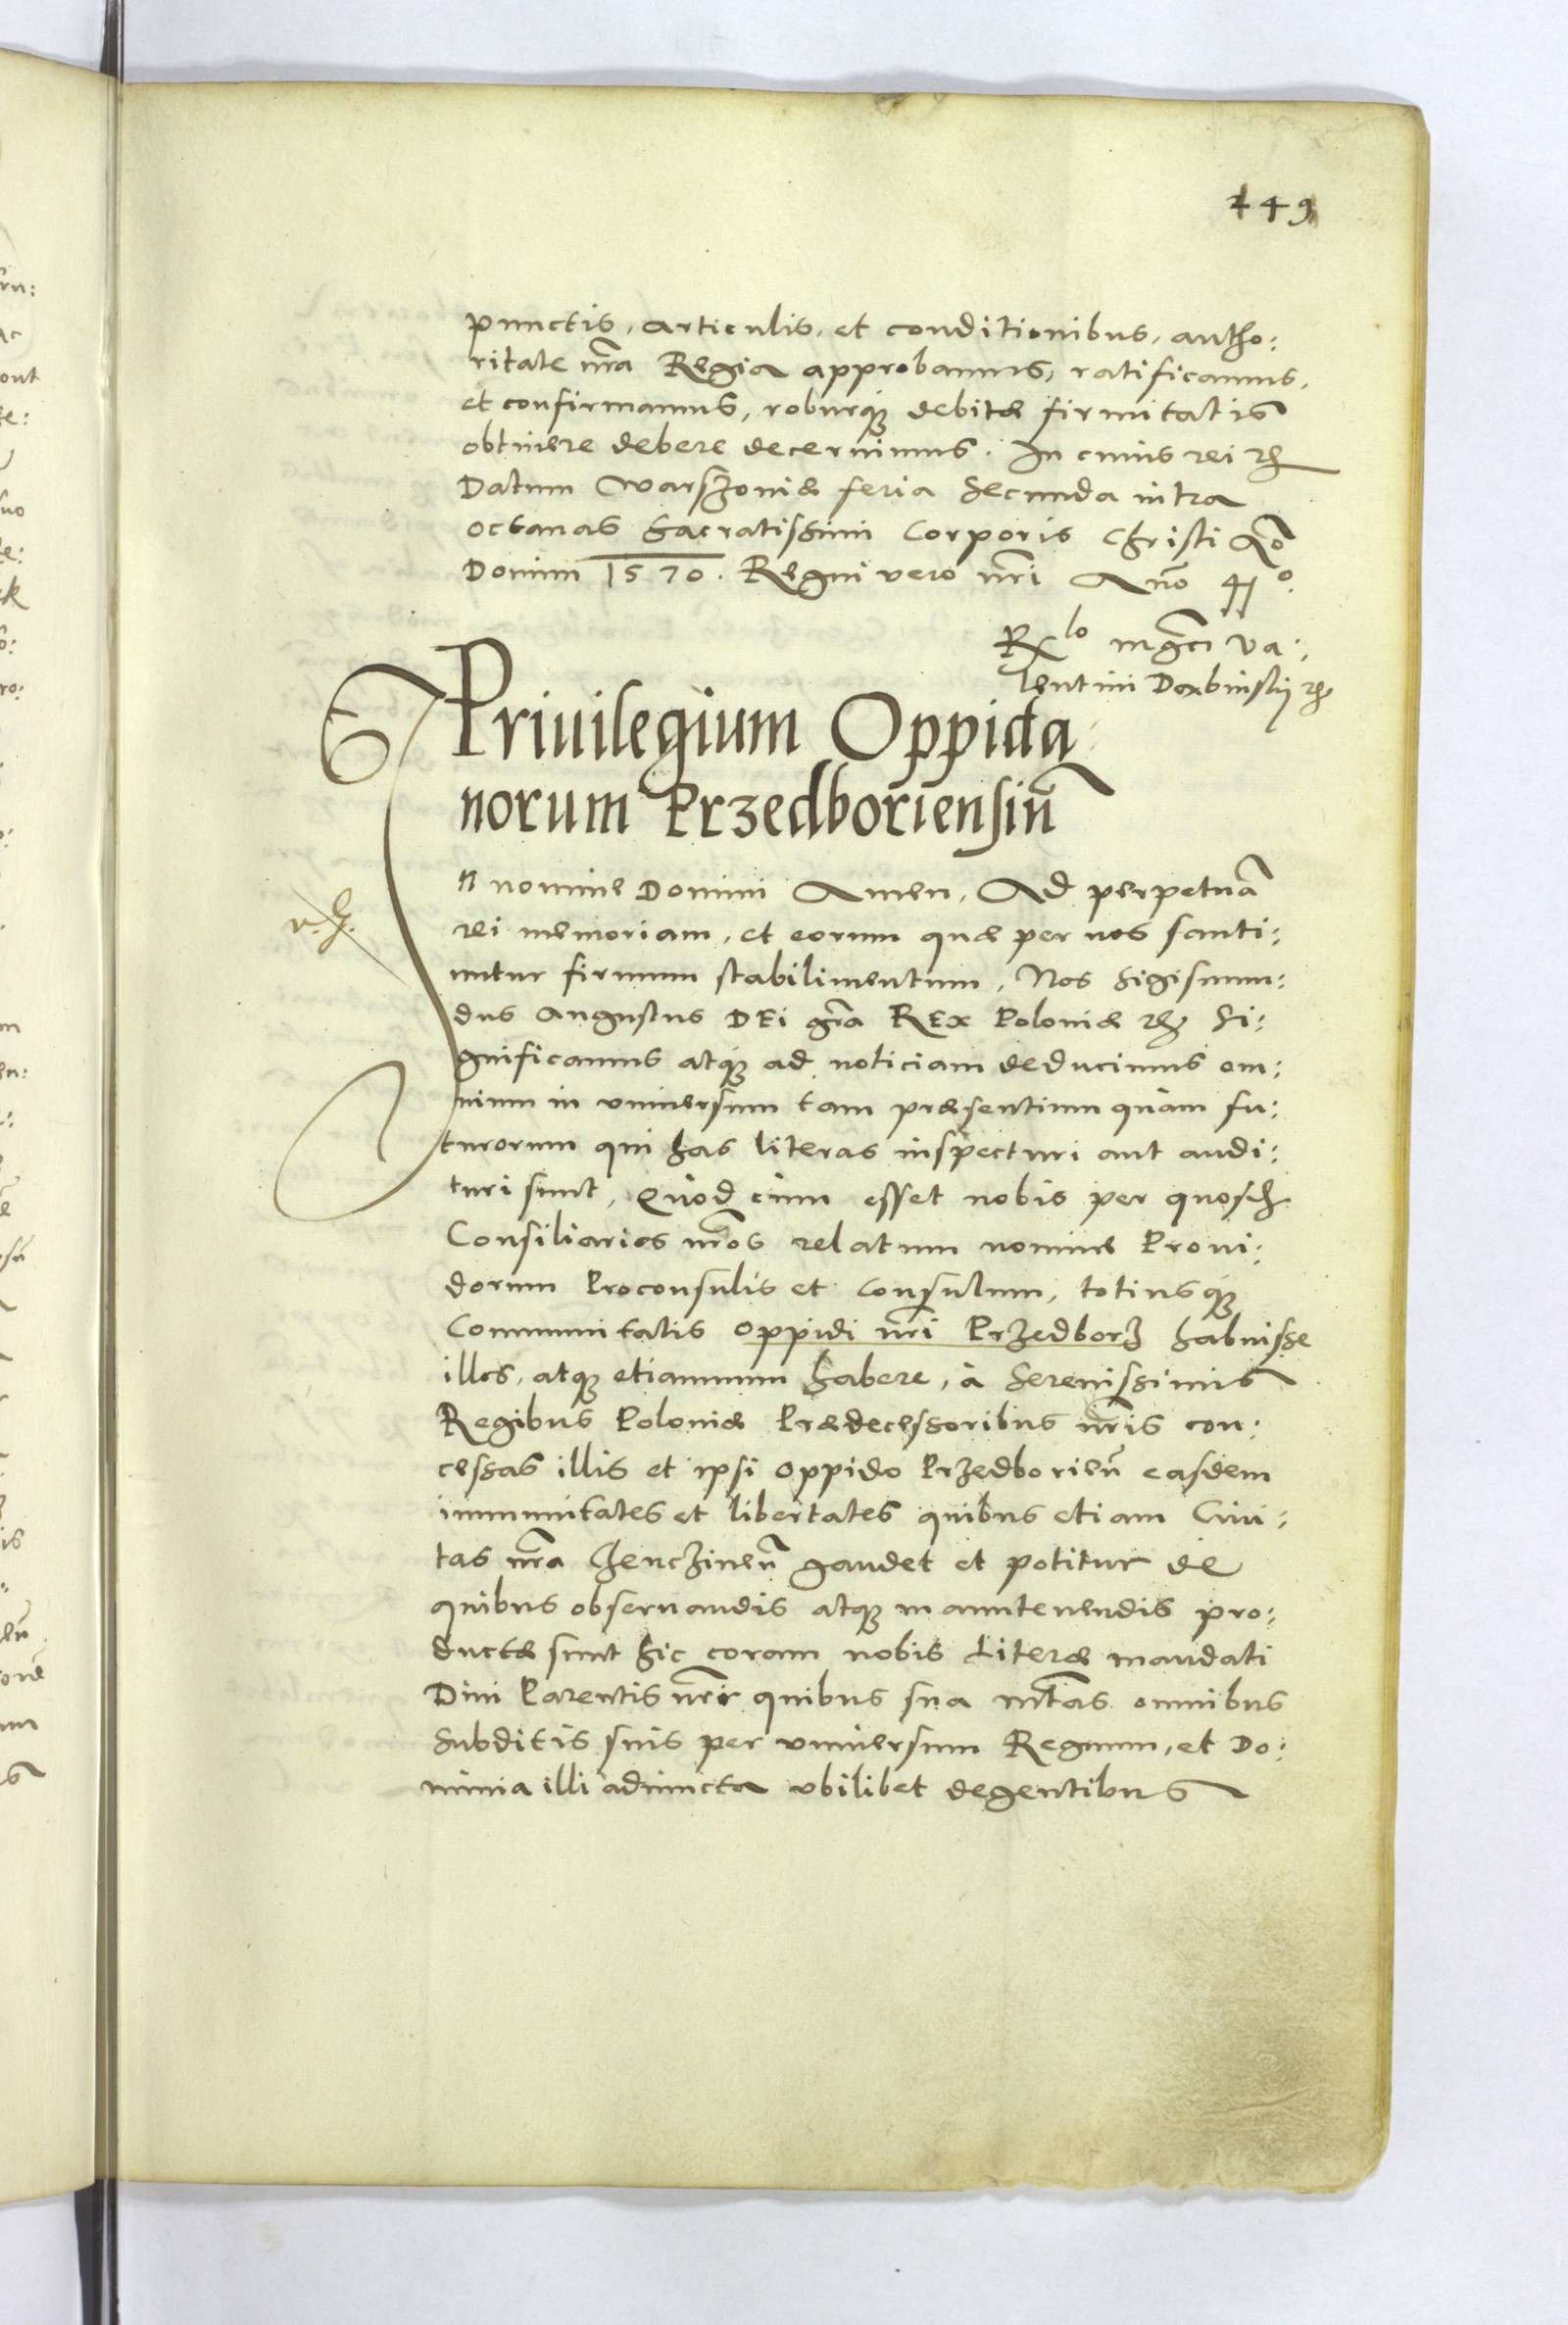 149
punctis, articulis, et conditionibus, autho:
ritate nrã Regia approbamus, ratificamus,
et confirmamus, roburq́ꝫ debitæ firmitatis
obtinere debere decernimus. In cuius rei ꝛc
Datum Warszoviæ feria Secunda intra
octauas Sacratissimi Corporis Christi Año
Domini 1570. Regni vero nrĩ Anõ 41º.
Rlo mgcĩ Va:
lentini Dembinskij ꝛc
Priuilegium Oppida
norum Przedboriensiũ
In nomine Domini Amen. Ad perpetuã
rei memoriam, et eorum quæ per nos santi:
untur firmum stabilimentum. Nos Sigismun:
dus Augustus DEi grã REx Poloniæ ꝛc Si:
gnificamus atq́ꝫ ad noticiam deducimus om:
nium in vniuersum tam præsentium quàm fu:
turorum qui has literas inspecturi aut audi:
turi sunt, Quod cum esset nobis per quosd
Consiliarios nrõs relatum nomine Proui:
dorum Proconsulis et Consulum, totiusq́ꝫ
Communitatis oppidi nrĩ Przedborz habuisse
illos, atqꝫ etiamnum habere, à Serenissimis
Regibus Poloniæ Prædecessoribus nrĩs con:
cessas illis et ipsi oppido Przedborieñ easdem
immunitates et libertates quibus etiam Ciui:
tas nrã Chenczineñ gaudet et potitur de
quibus obseruandis atqꝫ manutenendis pro:
ductæ sunt hic coram nobis Literæ mandati
Diui Parentis nrĩ quibus sua mtãs omnibus
Subditis suis per vniuersum Regnum, et Do:
minia illi adiuncta vbilibet degentibus